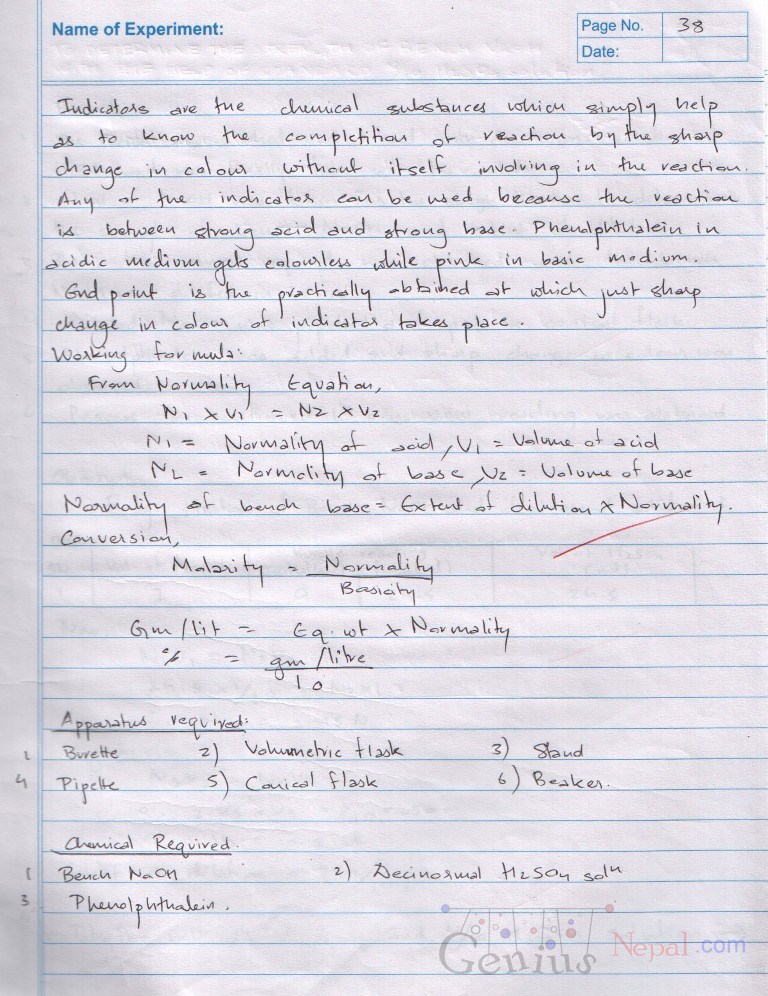 Name of Experiment:
Page No. 38
Date:
Indicators are the chemical substances which simply help
as to know the complctition of reaction by the sharp
change in colour without itself involving in the reaction.
Any of the indicator can be used because the reaction
is between strong acid and strong base. Phenolphthalein in
acidic medium gets colourless while pink in basic medium.
End point is the practically obtained at which just sharp
change in colour of indicator takes place.
Working formula:
From Normality Equation,
N1 x V1 = N2 x V2
N1 = Normality of acid, V1 = Volume of acid
N2 = Normality of base, V2 = Volume of base
Normality of bench base = Extent of dilution x Normality.
Conversion,
Molarity = Normality
Basicity
Gm/lit = Eq. wt x Normality
% = gm/litre
10
Apparatus required:
1 Burette 2) Volumetric flask 3) Stand
4 Pipette 5) Conical flask 6) Beaker.
Chemical Required.
1 Bench NaOH 2) Decinormal H2SO4 soln
3 Phenolphthalein.
Genius Nepal.com